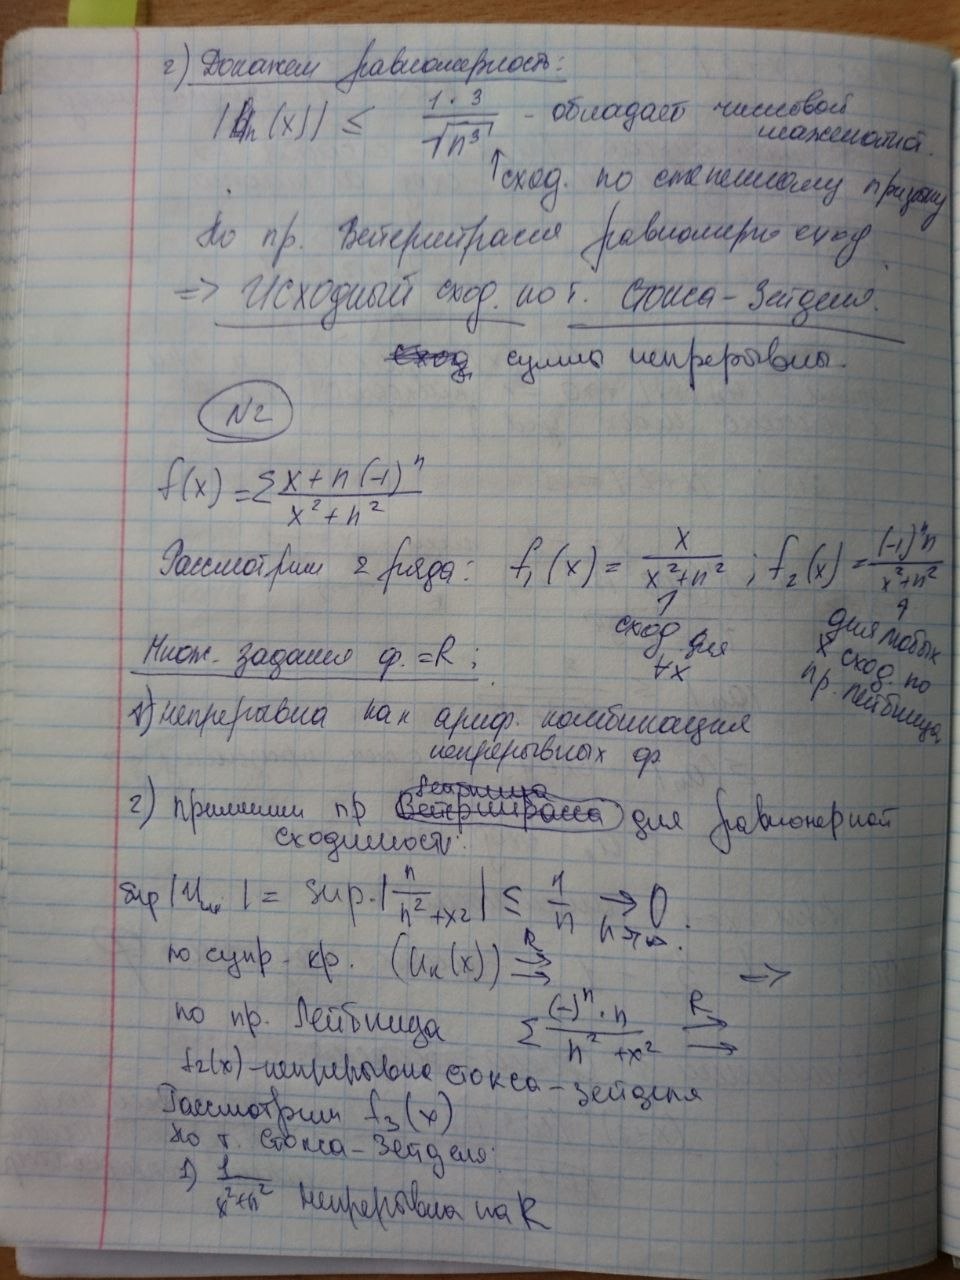 2) Докажем равномерность:
|Un(x)| ≤ 1·3/√n³ - обладает числовой
мажемотой.
↑ сход. по степенному призаку
По пр. Вейерштрасса равномерно сход.
=> Исходный сход. по т. Стокса-Зейделя.
сумма непрерывна.
N2
f(x) = Σ (x+n(-1)ⁿ)/(x²+n²)
Рассмотрим 2 ряда: f₁(x) = x/(x²+n²) ; f₂(x) = (-1)ⁿn/(x²+n²)
↑ сход для ∀x
↑ для любых x сход. по пр. Лейбница.
Множ. задания ф. = R;
1) непрерывна как ариф. комбинация
непрерывных ф
Лейбница
2) применим пр Вейерштрасса для равномерной
сходимости:
sup |Un| = sup |n/(n²+x²)| ≤ 1/n → 0
n→∞.
по супр-кр. (Un(x)) ⇉ R =>
по пр. Лейбница Σ (-)ⁿ·n/(n²+x²) ⇉ R
f₂(x)-непрерывна Стокса-Зейделя
Рассмотрим f₃(x)
По т. Стокса-Зейделя:
1) 1/(x²+n²) непрерывна на R